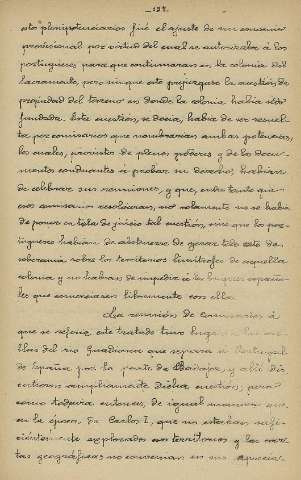 -127-
estos plenipotenciarios fué el ajuste de un convenio
provisional por virtud del cual se autorizaba á los
portugueses para que continuaran en la colonia del
Sacramento, pero sin que esto prejuzgase la cuestión de
propiedad del terreno en donde la colonia había sido
fundada. Esta cuestión, se decía, había de ser resuel-
ta por comisarios que nombrarían ambas potencias,
los cuales, provistos de plenos poderes y de los docu-
mentos conducentes á probar su derecho, habrían
de celebrar sus reuniones, y que, entre tanto que
esos comisarios resolvieran, no solamente no se había
de poner en tela de juicio tal cuestión, sino que los por-
tugueses habían de abstenerse de ejercer todo acto de
soberanía sobre los territorios limítrofes de aquella
colonia y no habían de impedir á los buques españo-
les que comerciasen libremente con ella.
La reunión de Comisarios á
que se refiere este tratado tuvo lugar á las ori-
llas del río Guadiana que separa á Portugal
de España por la parte de Badajoz, y allí dis-
cutieron ampliamente dicha cuestión; pero
como todavía entonces, de igual manera que
en la época de Carlos I, que no estaban sufi-
cientemente explorados los territorios y las cartas
geográficas no conservan en su